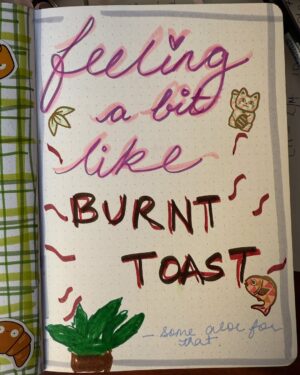 feeling
a bit
like
BURNT
TOAST
— some aloe for
that.